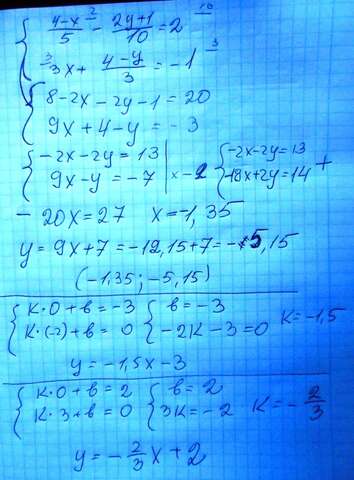 { (4-x)/5 ² - (2y+1)/10 = 2 |10
³ 3x + (4-y)/3 = -1 |3
{ 8-2x-2y-1=20
9x+4-y=-3
{ -2x-2y=13 | { -2x-2y=13 +
9x-y=-7 | x-2 -18x+2y=14
-20x=27 x=-1,35
y=9x+7=-12,15+7=-5,15
(-1,35; -5,15)
{ k·0+b=-3 { b=-3
k·(-2)+b=0 -2k-3=0 k=-1,5
y=-1,5x-3
{ k·0+b=2 { b=2
k·3+b=0 3k=-2 k=-2/3
y=-2/3x+2